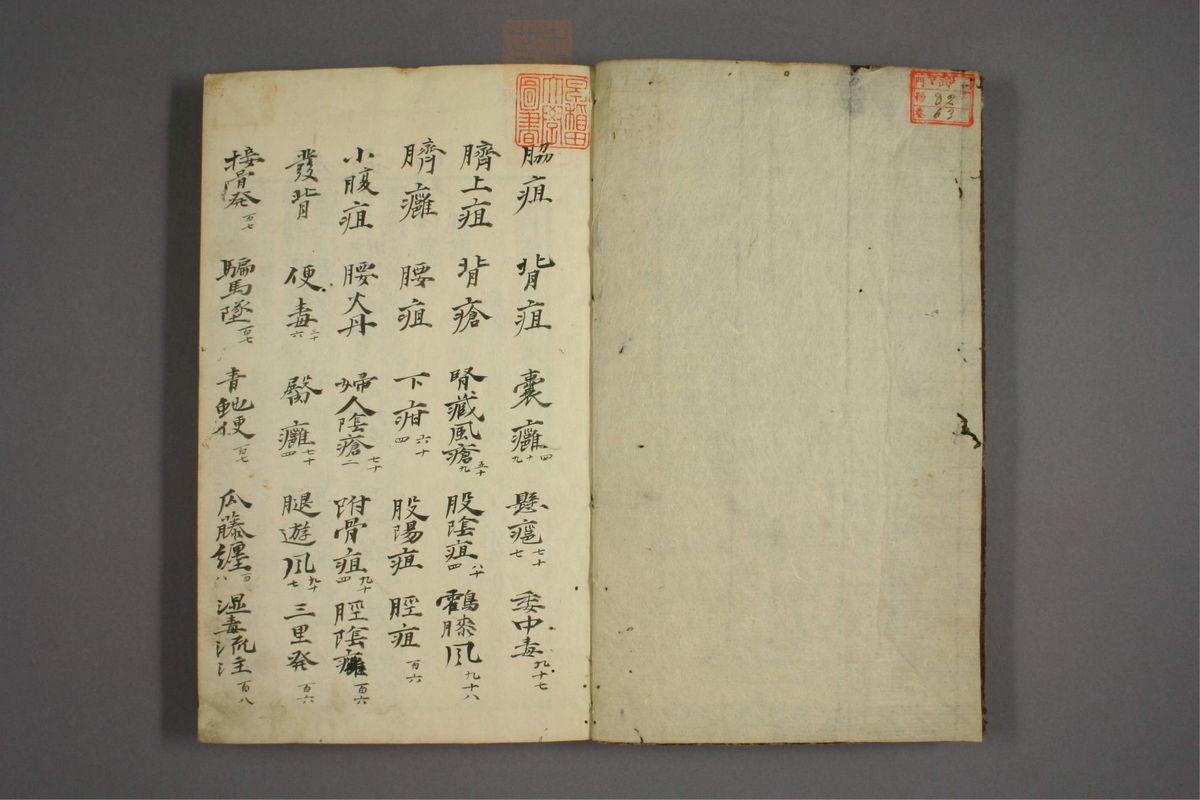 早稲田大學圖書
門
號
巻
82
63
脇疽 背疽 囊癰四十九 懸癰七十七 委中毒九十七
臍上疽 背瘡 腎蔵風瘡五十九 股陰疽八十四 鶴膝風九十八
臍癰 腰疽 下疳六十四 股陽疽 脛疽百六
小腹疽 腰火丹 婦人陰瘡七十二 附骨疽九十四 脛陰癰百六
發背 便毒三十六 臀癰七十四 腿遊風九十七 三里発百六
接骨発百七 騙馬墜百七 青虵便百七 瓜藤纒百八 湿毒流注百八